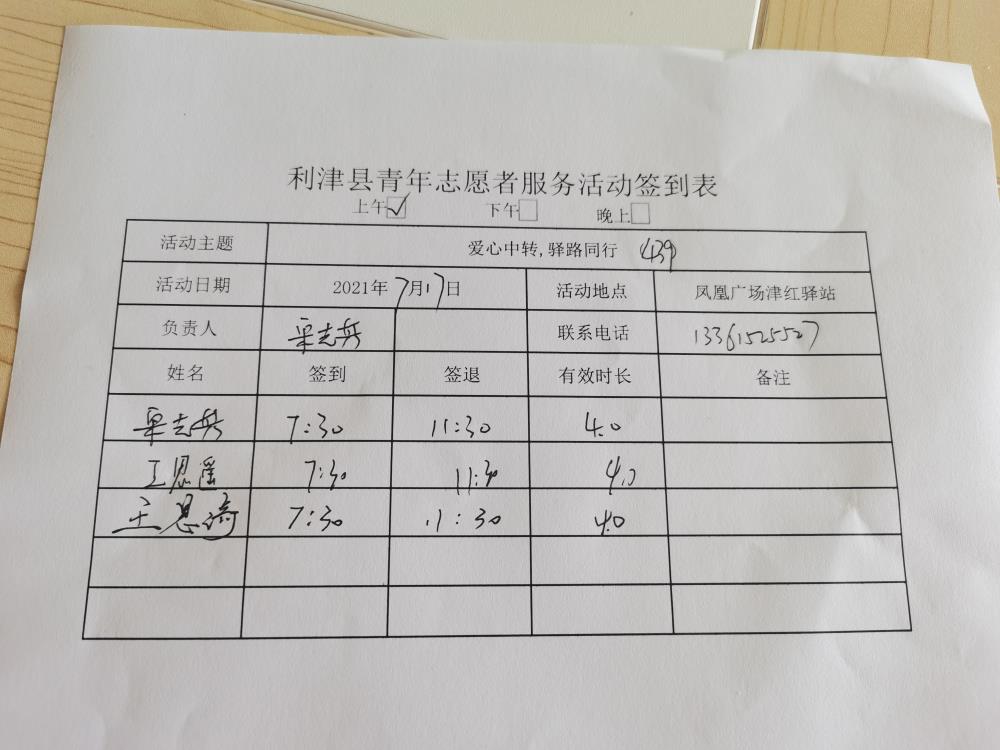 利津县青年志愿者服务活动签到表
上午☑ 下午☐ 晚上☐
活动主题 爱心中转,驿路同行 439
活动日期 2021年7月17日 活动地点 凤凰广场津红驿站
负责人 志兵 联系电话 13361525527
姓名 签到 签退 有效时长 备注
志兵 7:30 11:30 4.0
王恩遥 7:30 11:30 4.0
王恩 7:30 11:30 4.0